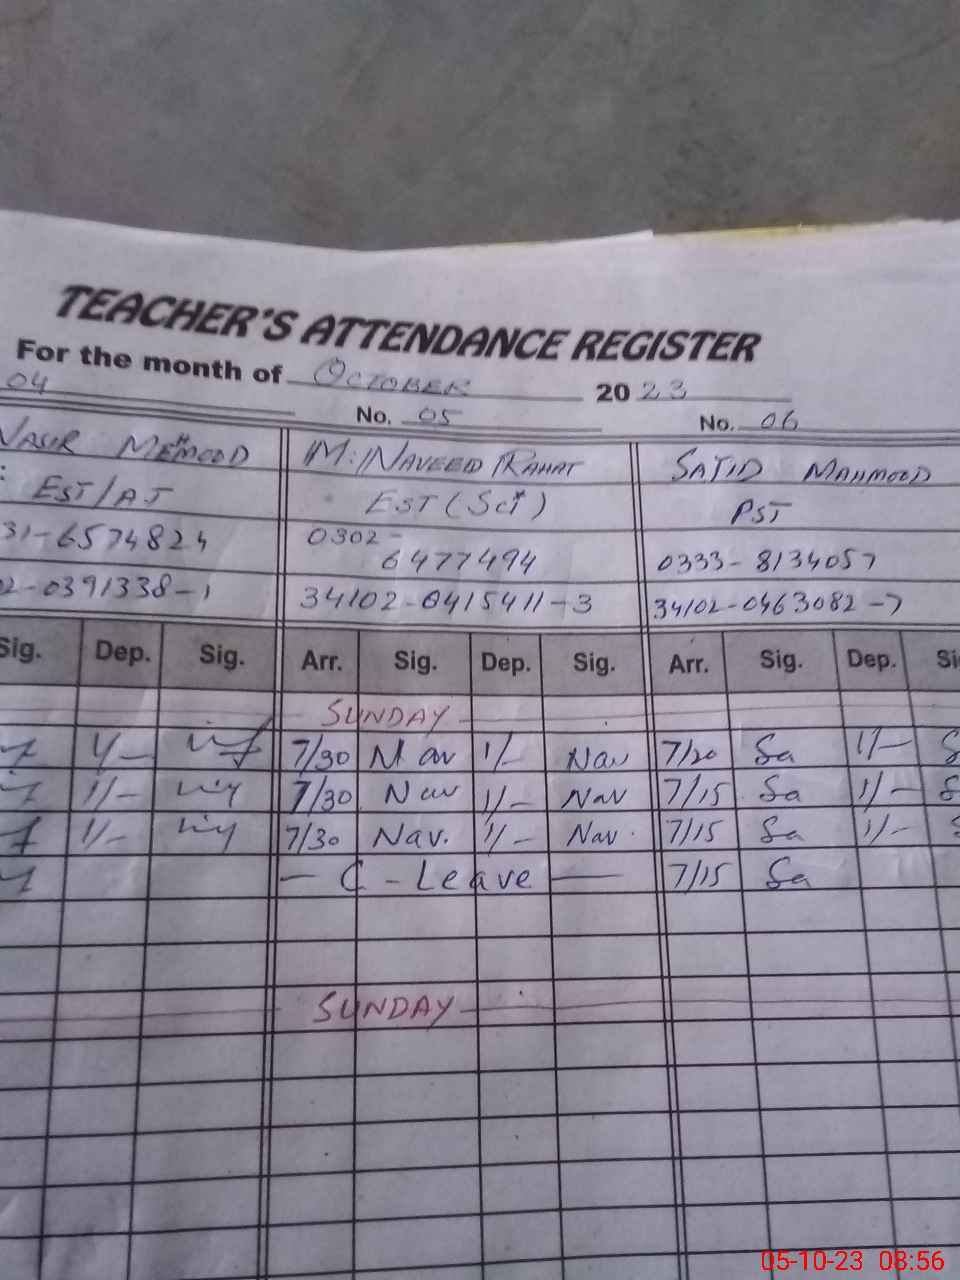 TEACHER'S ATTENDANCE REGISTER
For the month of October 2023
04 No. 05 No. 06
Nasir Mehmood M. Naveed Rahat Sajid Mahmood
EST/AT EST (Sci) PST
31-6574824 0302-6477494 0333-8134057
02-0391338-1 34102-0415411-3 34102-0463082-7
Sig. Dep. Sig. Arr. Sig. Dep. Sig. Arr. Sig. Dep. Si
SUNDAY
1/- 7/30 Nav 1/- Nav 7/20 Sa 1/- S
1/- 7/30 Nav 1/- Nav 7/15 Sa 1/- S
1/- 7/30 Nav. 1/- Nav. 7/15 Sa 1/- S
- C - Leave - 7/15 Sa
SUNDAY
05-10-23 08:56